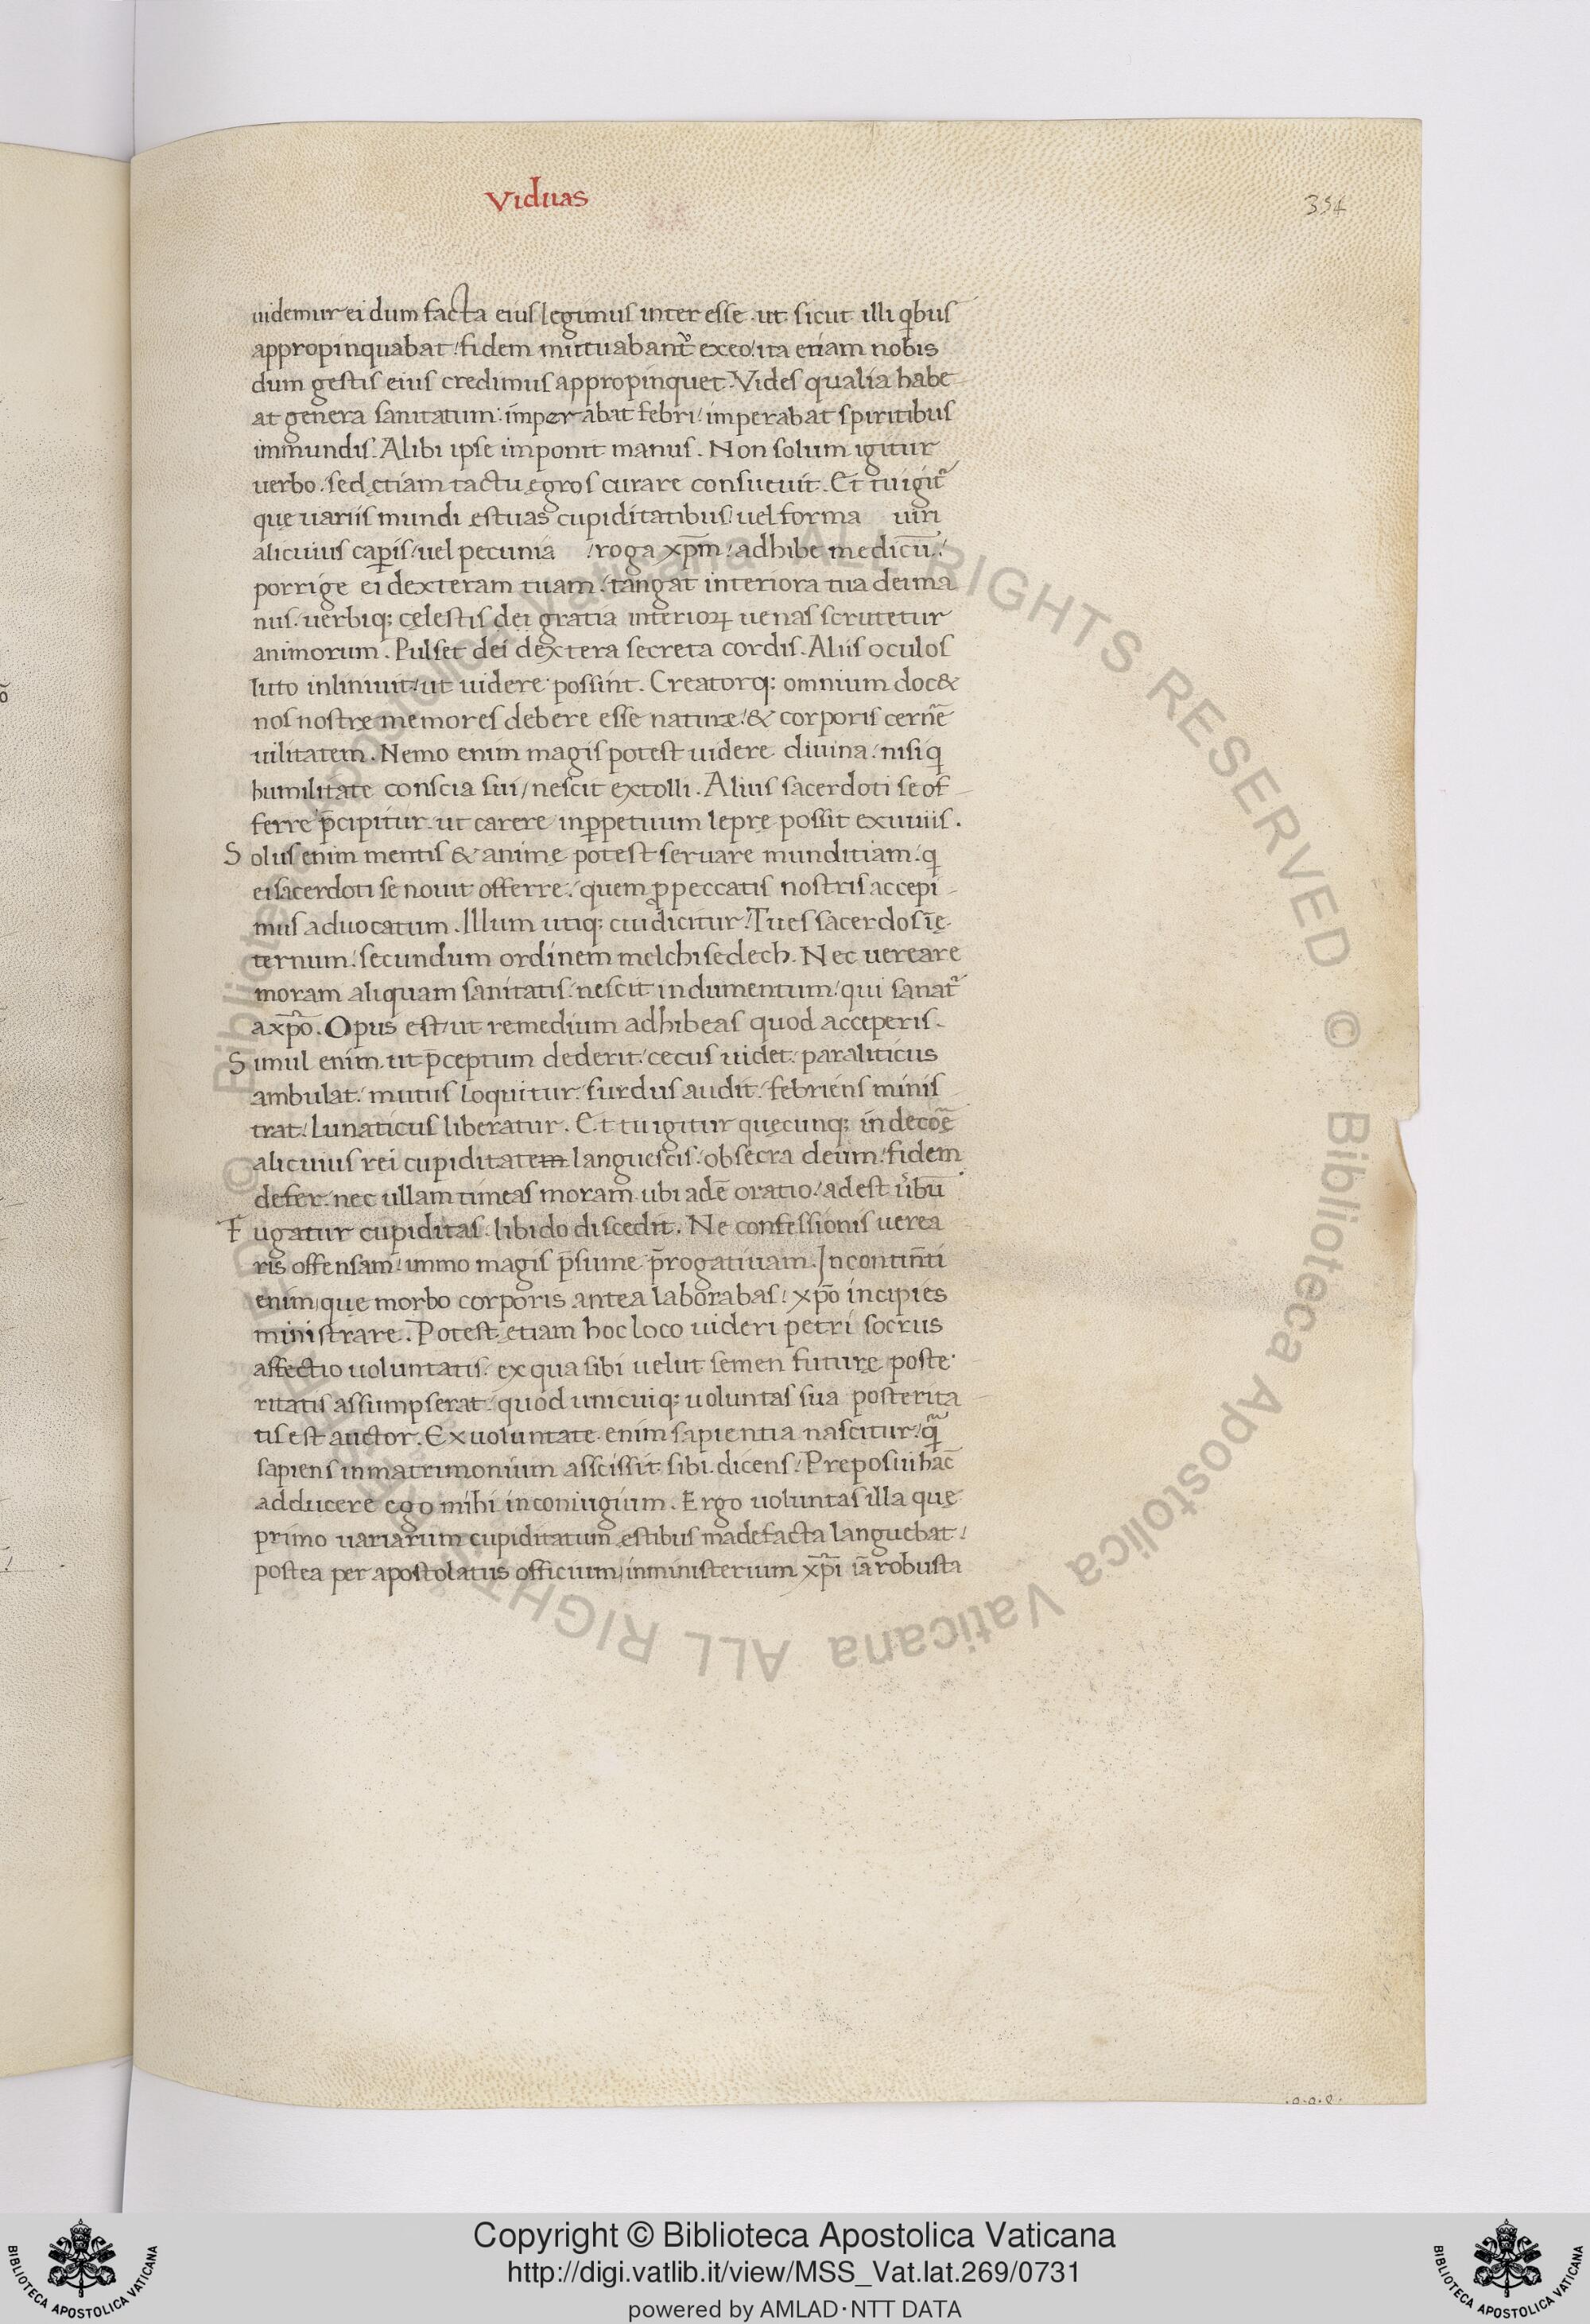 Viduas
354
uidemur ei dum facta eius legimus inter esse. ut sicut illi qbus
appropinquabat / fidem mutuabant᷑ ex eo / ita etiam nobis
dum gestis eius credimus appropinquet. Vides qualia habe
at genera sanitatum: imperabat febri / imperabat spiritibus
immundis. Alibi ipse imponit manus. Non solum igitur
uerbo. sed etiam tactu ęgros curare consueuit. Et tu igit᷑
quę uariis mundi ęstuas cupiditatibus / uel forma uiri
alicuius caꝑis / uel pecunia / roga xp̄m / adhibe medicū /
porrige ei dexteram tuam. tangat interiora tua dei ma
nus. uerbiq; cęlestis dei gratia interioꝝ uenas scrutetur
animorum. Pulset dei dextera secreta cordis. Aliis oculos
luto inliniuit / ut uidere possint. Creatorq; omnium doc&
nos nostrę memores debere esse naturę / & corporis cerne᷑
uilitatem. Nemo enim magis potest uidere diuina / nisi q
humilitate conscia sui / nescit extolli. Alius sacerdoti se of
ferre p̄cipitur. ut carere inꝑpetuum leprę possit exuuiis.
Solus enim mentis & animę potest seruare munditiam. q
ei sacerdoti se nouit offerre / quem ꝓ peccatis nostris accepi
mus aduocatum. Illum utiq; cui dicitur / Tu es sacerdos ī ę
ternum / secundum ordinem melchisedech. Nec uereare
moram aliquam sanitatis / nescit indumentum / qui sanat᷑
a xp̄o. Opus est / ut remedium adhibeas quod acceperis.
Simul enim ut p̄ceptum dederit / cecus uidet / paraliticus
ambulat / mutus loquitur / surdus audit / febriens minis
trat / Lunaticus liberatur. Et tu igitur quęcunq; indecorę
alicuius rei cupiditatem languescis / obsecra deum / fidem
defer. nec ullam timeas moram. ubi adē oratio / adest u᷑bū
Fugatur cupiditas. libido discedit. Ne confessionis uerea
ris offensam / immo magis p̄sume p̄rogatiuam. Incontin̄ti
enim quę morbo corporis antea laborabas / xp̄o incipies
ministrare. Potest etiam hoc loco uideri petri socrus
affectio uoluntatis. ex qua sibi uelut semen futurę poste
ritatis assumpserat / quod unicuiq; uoluntas sua posterita
tis est auctor. Ex uoluntate enim sapientia nascitur / q᷑
sapiens in matrimonium asscissit sibi. dicens / Preposui hāc
adducere ego mihi in coniugium. Ergo uoluntas illa quę
primo uariarum cupiditatum ęstibus madefacta languebat /
postea per apostolatus officium / in ministerium xp̄i iā robusta
© Biblioteca Apostolica Vaticana ALL RIGHTS RESERVED © Biblioteca Apostolica Vaticana ALL RIGHT
Copyright © Biblioteca Apostolica Vaticana
http://digi.vatlib.it/view/MSS_Vat.lat.269/0731
powered by AMLAD·NTT DATA
BIBLIOTECA APOSTOLICA VATICANA
BIBLIOTECA APOSTOLICA VATICANA